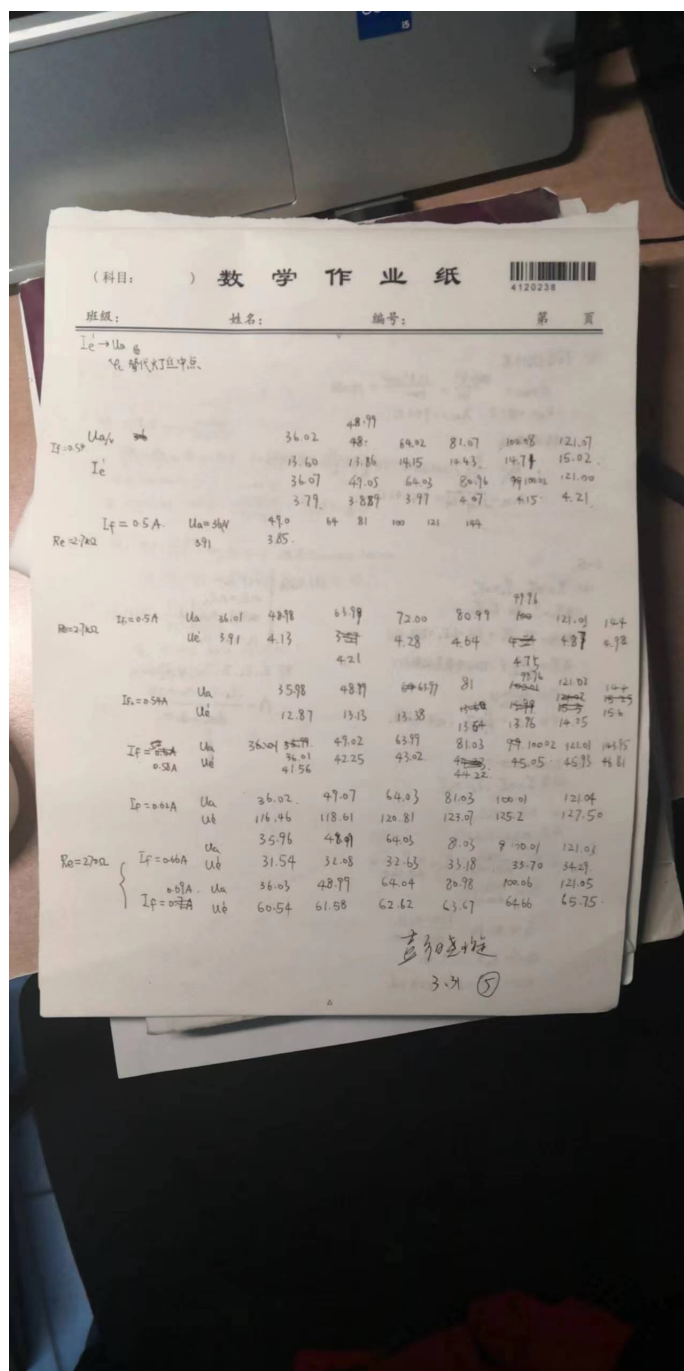 i5
(科目: ) 数学作业纸
4120238
班级: 姓名: 编号: 第 页
Ie' → Ua
替代灯丝中点
48.99
If=0.54 Ua/v 36.02 48. 64.02 81.07 100.08 121.07
Ie' 13.60 13.86 14.15 14.43 14.71 15.02
36.07 49.05 64.03 80.96 100.02 121.00
3.79 3.889 3.97 4.07 4.15 4.21
If=0.5A. Ua=36V 49.0 64 81 100 121 144
Re=2.7kΩ 3.91 3.85
99.96
Re=2.7kΩ If=0.5A Ua 36.01 48.98 63.98 72.00 80.99 100 121.01 144
Ue' 3.91 4.13 4.28 4.64 4.87 4.98
4.21 4.75
If=0.54A Ua 35.98 48.99 63.97 81 99.96 121.02 144
Ue' 12.87 13.13 13.38 13.64 13.76 14.25 15.6
If= Ua 36.01 49.02 63.99 81.03 100.02 121.01 143.95
0.58A Ue' 36.01 42.25 43.02 45.05 45.93 46.81
41.56 44.22
If=0.62A Ua 36.02 49.07 64.03 81.03 100.01 121.04
Ue' 116.46 118.61 120.81 123.07 125.2 127.50
Ua 35.96 48.99 64.03 8.03 100.01 121.03
Re=270Ω If=0.66A Ue' 31.54 32.08 32.63 33.18 33.70 34.29
0.69A. Ua 36.03 48.99 64.04 80.98 100.06 121.05
If= Ue' 60.54 61.58 62.62 63.67 64.66 65.75
3.31 ⑤